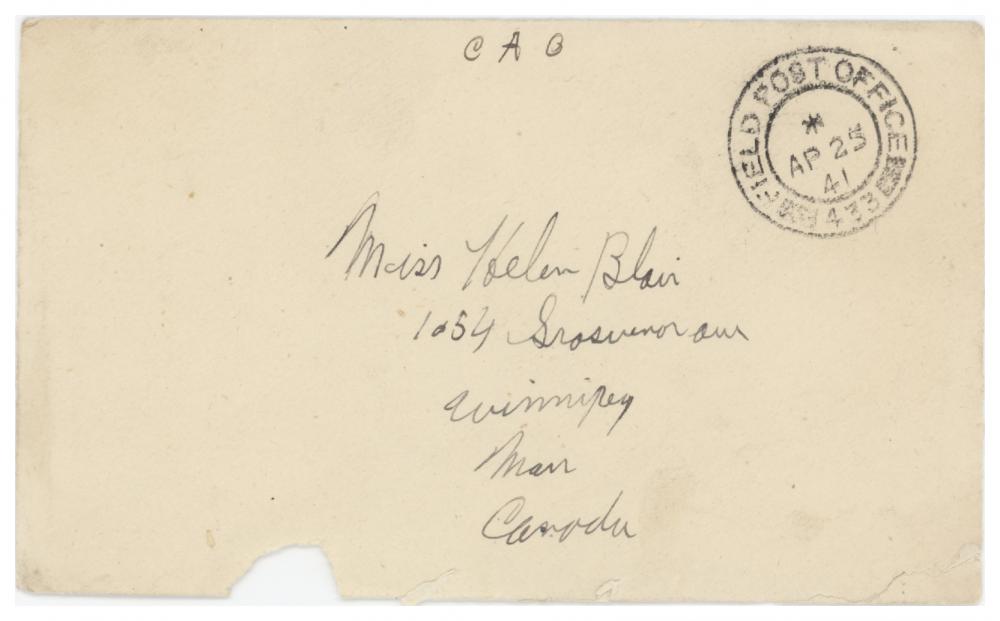 C A O
FIELD POST OFFICE
*
AP 25
41
433
Miss Helen Blair
1054 Grosvenor ave
Winnipeg
Man
Canada